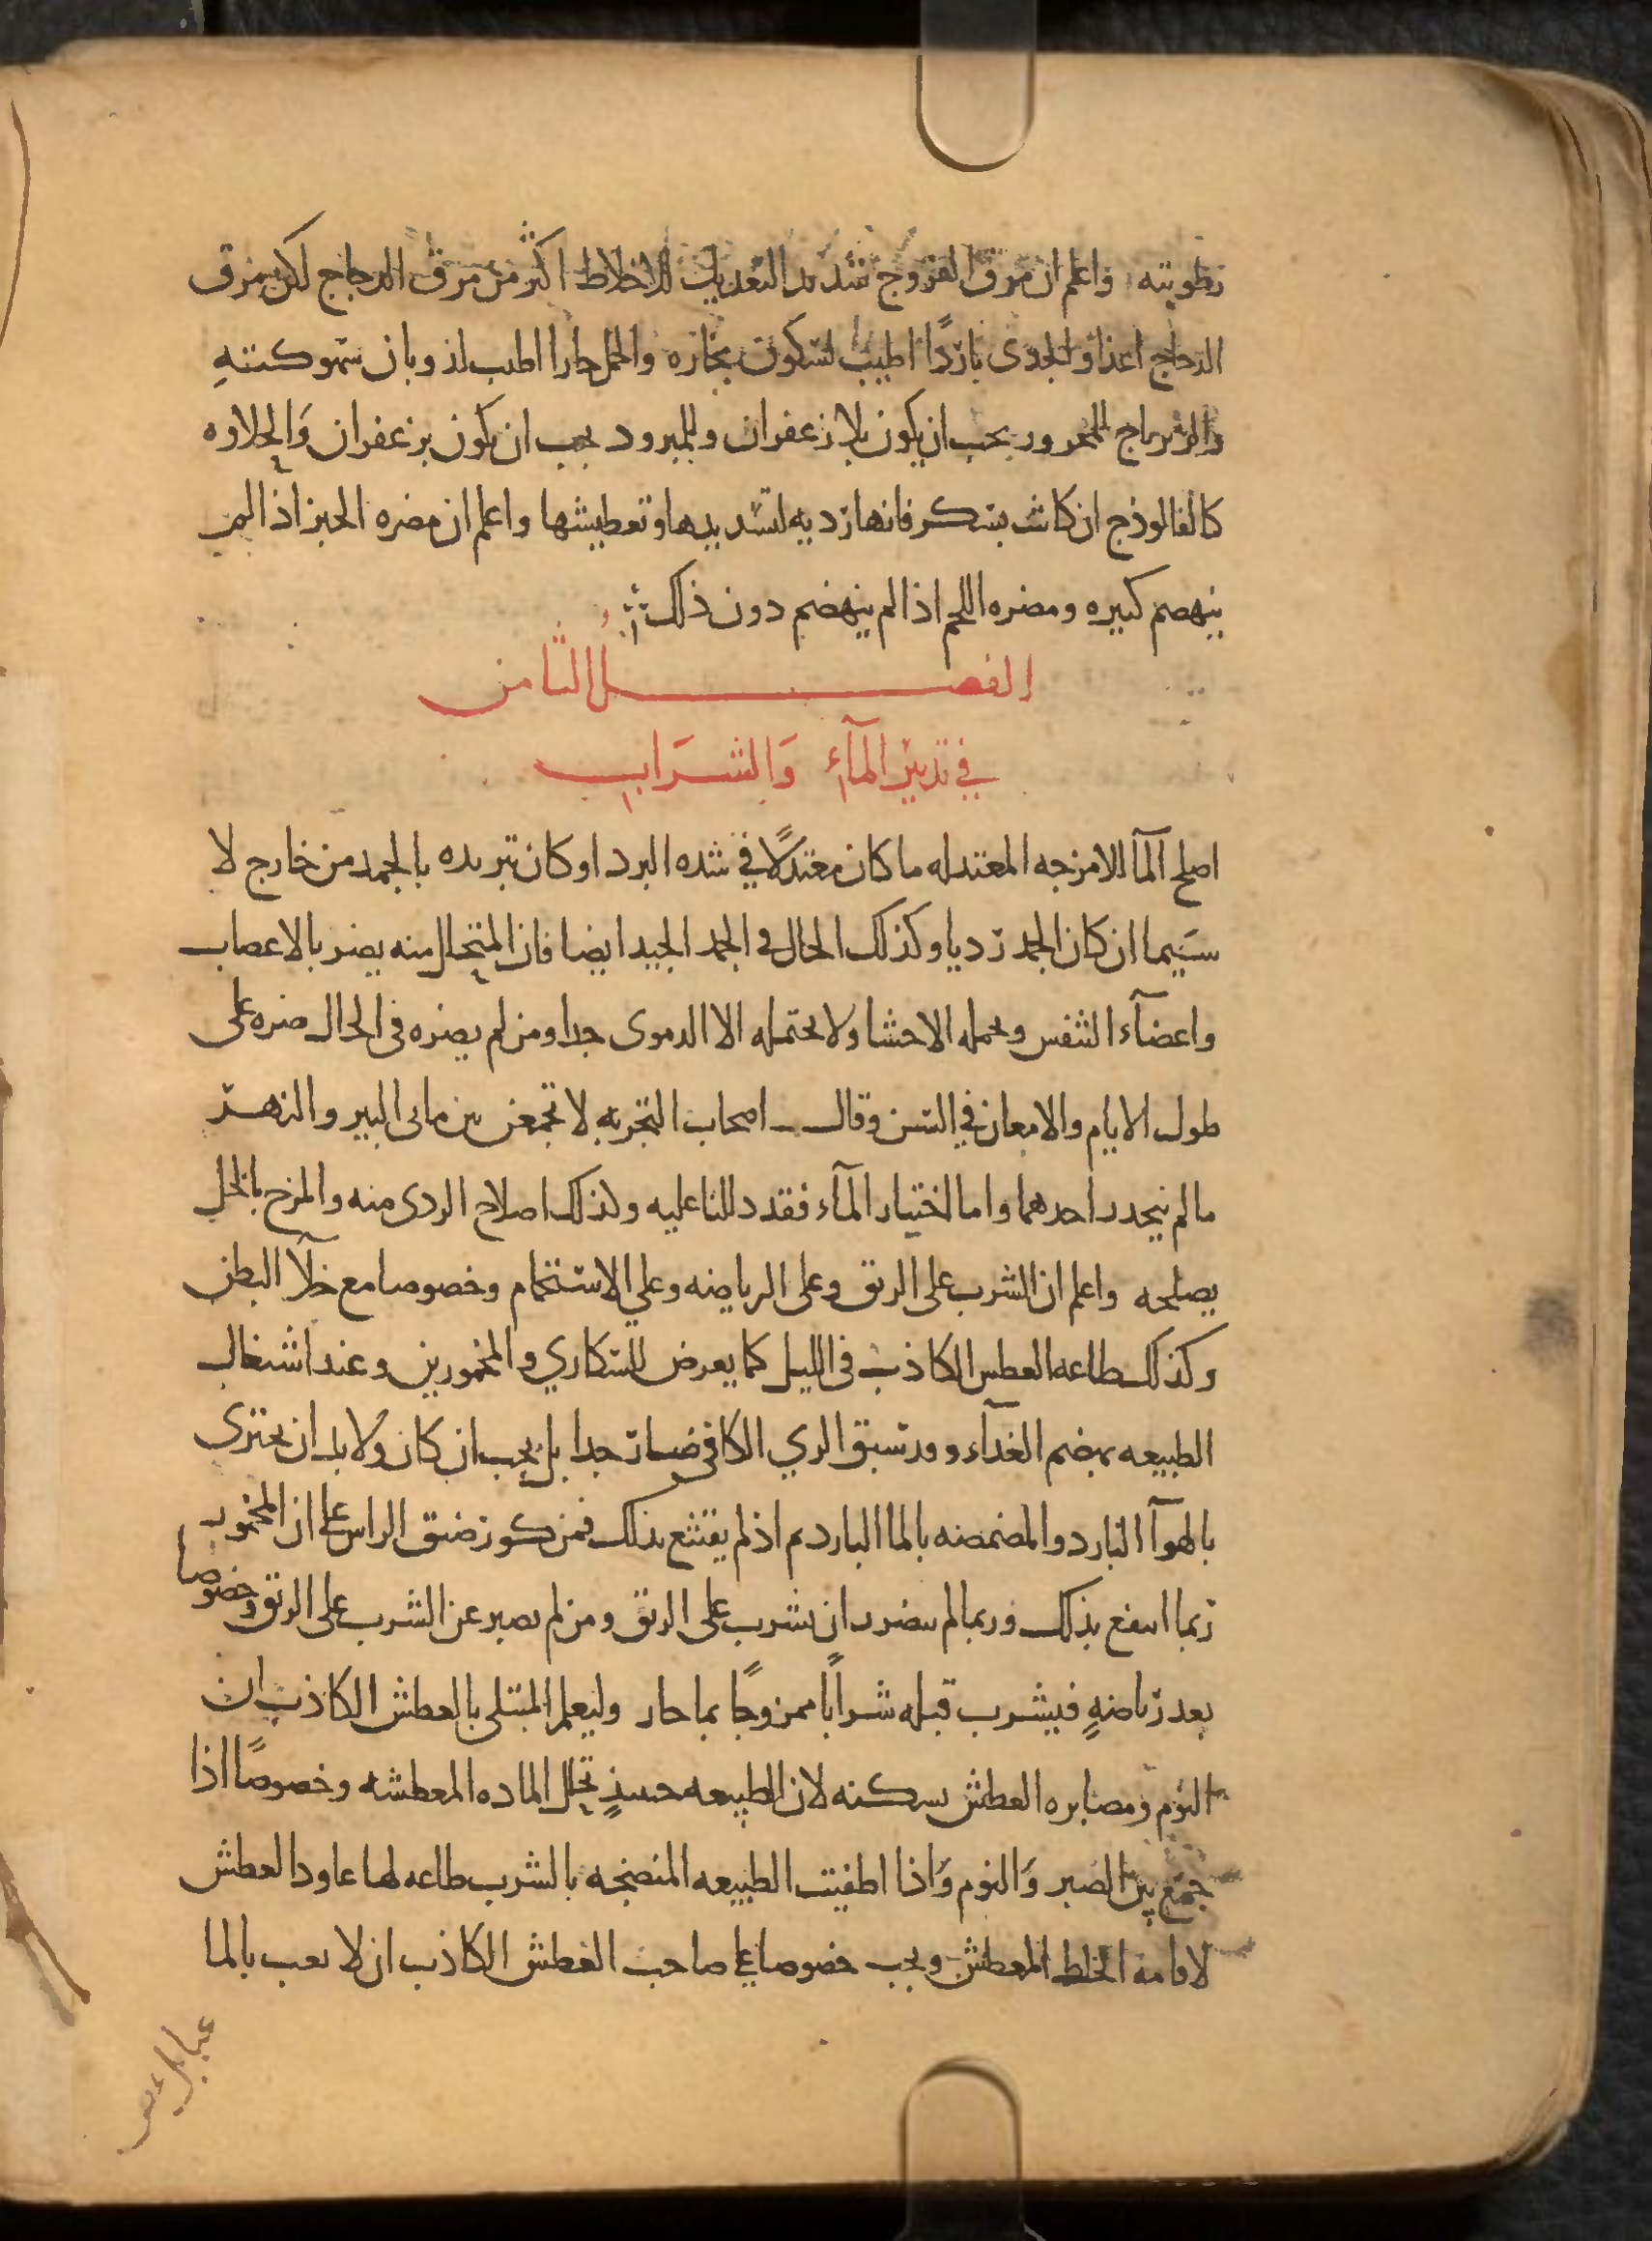 رطوبته واعلم ان مرق الفروج شديد التعديل للاخلاط اكثر من مرق الدجاج لكن مرق
الدجاج اغذا والجدى باردًا اطيب لسكون بخاره والحمل حارا اطيب لذوبان سهوكتهِ
والزيرباج للمحرور يجب ان يكون بلا زعفران وللمبرود يجب ان يكون بزعفران وَالحلاوه
كالفالوذج ان كانت بسكر فانها رديه لتسديدها وتعطيشها واعلم ان مضره الخبز اذا لم
ينهضم كبيره ومضره اللحم اذا لم ينهضم دون ذلك
الفصل الثامن
في تدبير المآء وَالشرَاب
اصلح المآ للامزجه المعتدله ما كان معتدلًا في شده البرد او كان تبريده بالجمد من خارج لا
سيَيما ان كان الجمد رديا وكذلك الحال فى الجمد الجيد ايضا فان المتحلل منه يضر بالاعصاب
واعضآء التنفس وبجمله الاحشا ولا يحتمله الا الدموى جدا ومن لم يضره فى الحال ضره على
طول الايام والامعان في السن وقال اصحاب التجربه لا تجمعن بين مائى البير والنهر
ما لم ينحدر احدهما واما اختيار المآء فقد دللنا عليه وكذلك اصلاح الردى منه والمزج بالخل
يصلحه واعلم ان الشرب على الريق وعلى الرياضه وعلي الاستحمام وخصوصا مع خلآ البطن
وكذلك طاعه العطس الكاذب فى الليل كما يعرض للسكاري والمخمورين وعند اشتغال
الطبيعه بهضم الغدآء وقد سبق الري الكافى ضار جدا بل يجب ان كان ولا بد ان يجتزى
بالهوآ البارد والمضمضه بالما البارد ثم اذ لم يقنع بذلك فمن كوز ضيق الراس على ان المخمور
ربما انتفع بذلك وربما لم يتضرر ان شرب على الريق ومن لم يصبر عن الشرب على الريق وخصوصا
بعد رياضهٍ فيشرب قبله شرابًا ممزوجًا بما حار وليعلم المبتلى بالعطش الكاذب ان
النوم ومصابره العطش يسكنه لان الطبيعه حينيذٍ تحلل الماده المعطشه وخصوصًا اذا
جمع بين الصبر وَالنوم وَاذا اطفيت الطبيعه المنضجه بالشرب طاعه لها عاود العطش
لاقامة الخلط المعطش ويجب خصوصا على صاحب العطش الكاذب ان لا يعب بالما